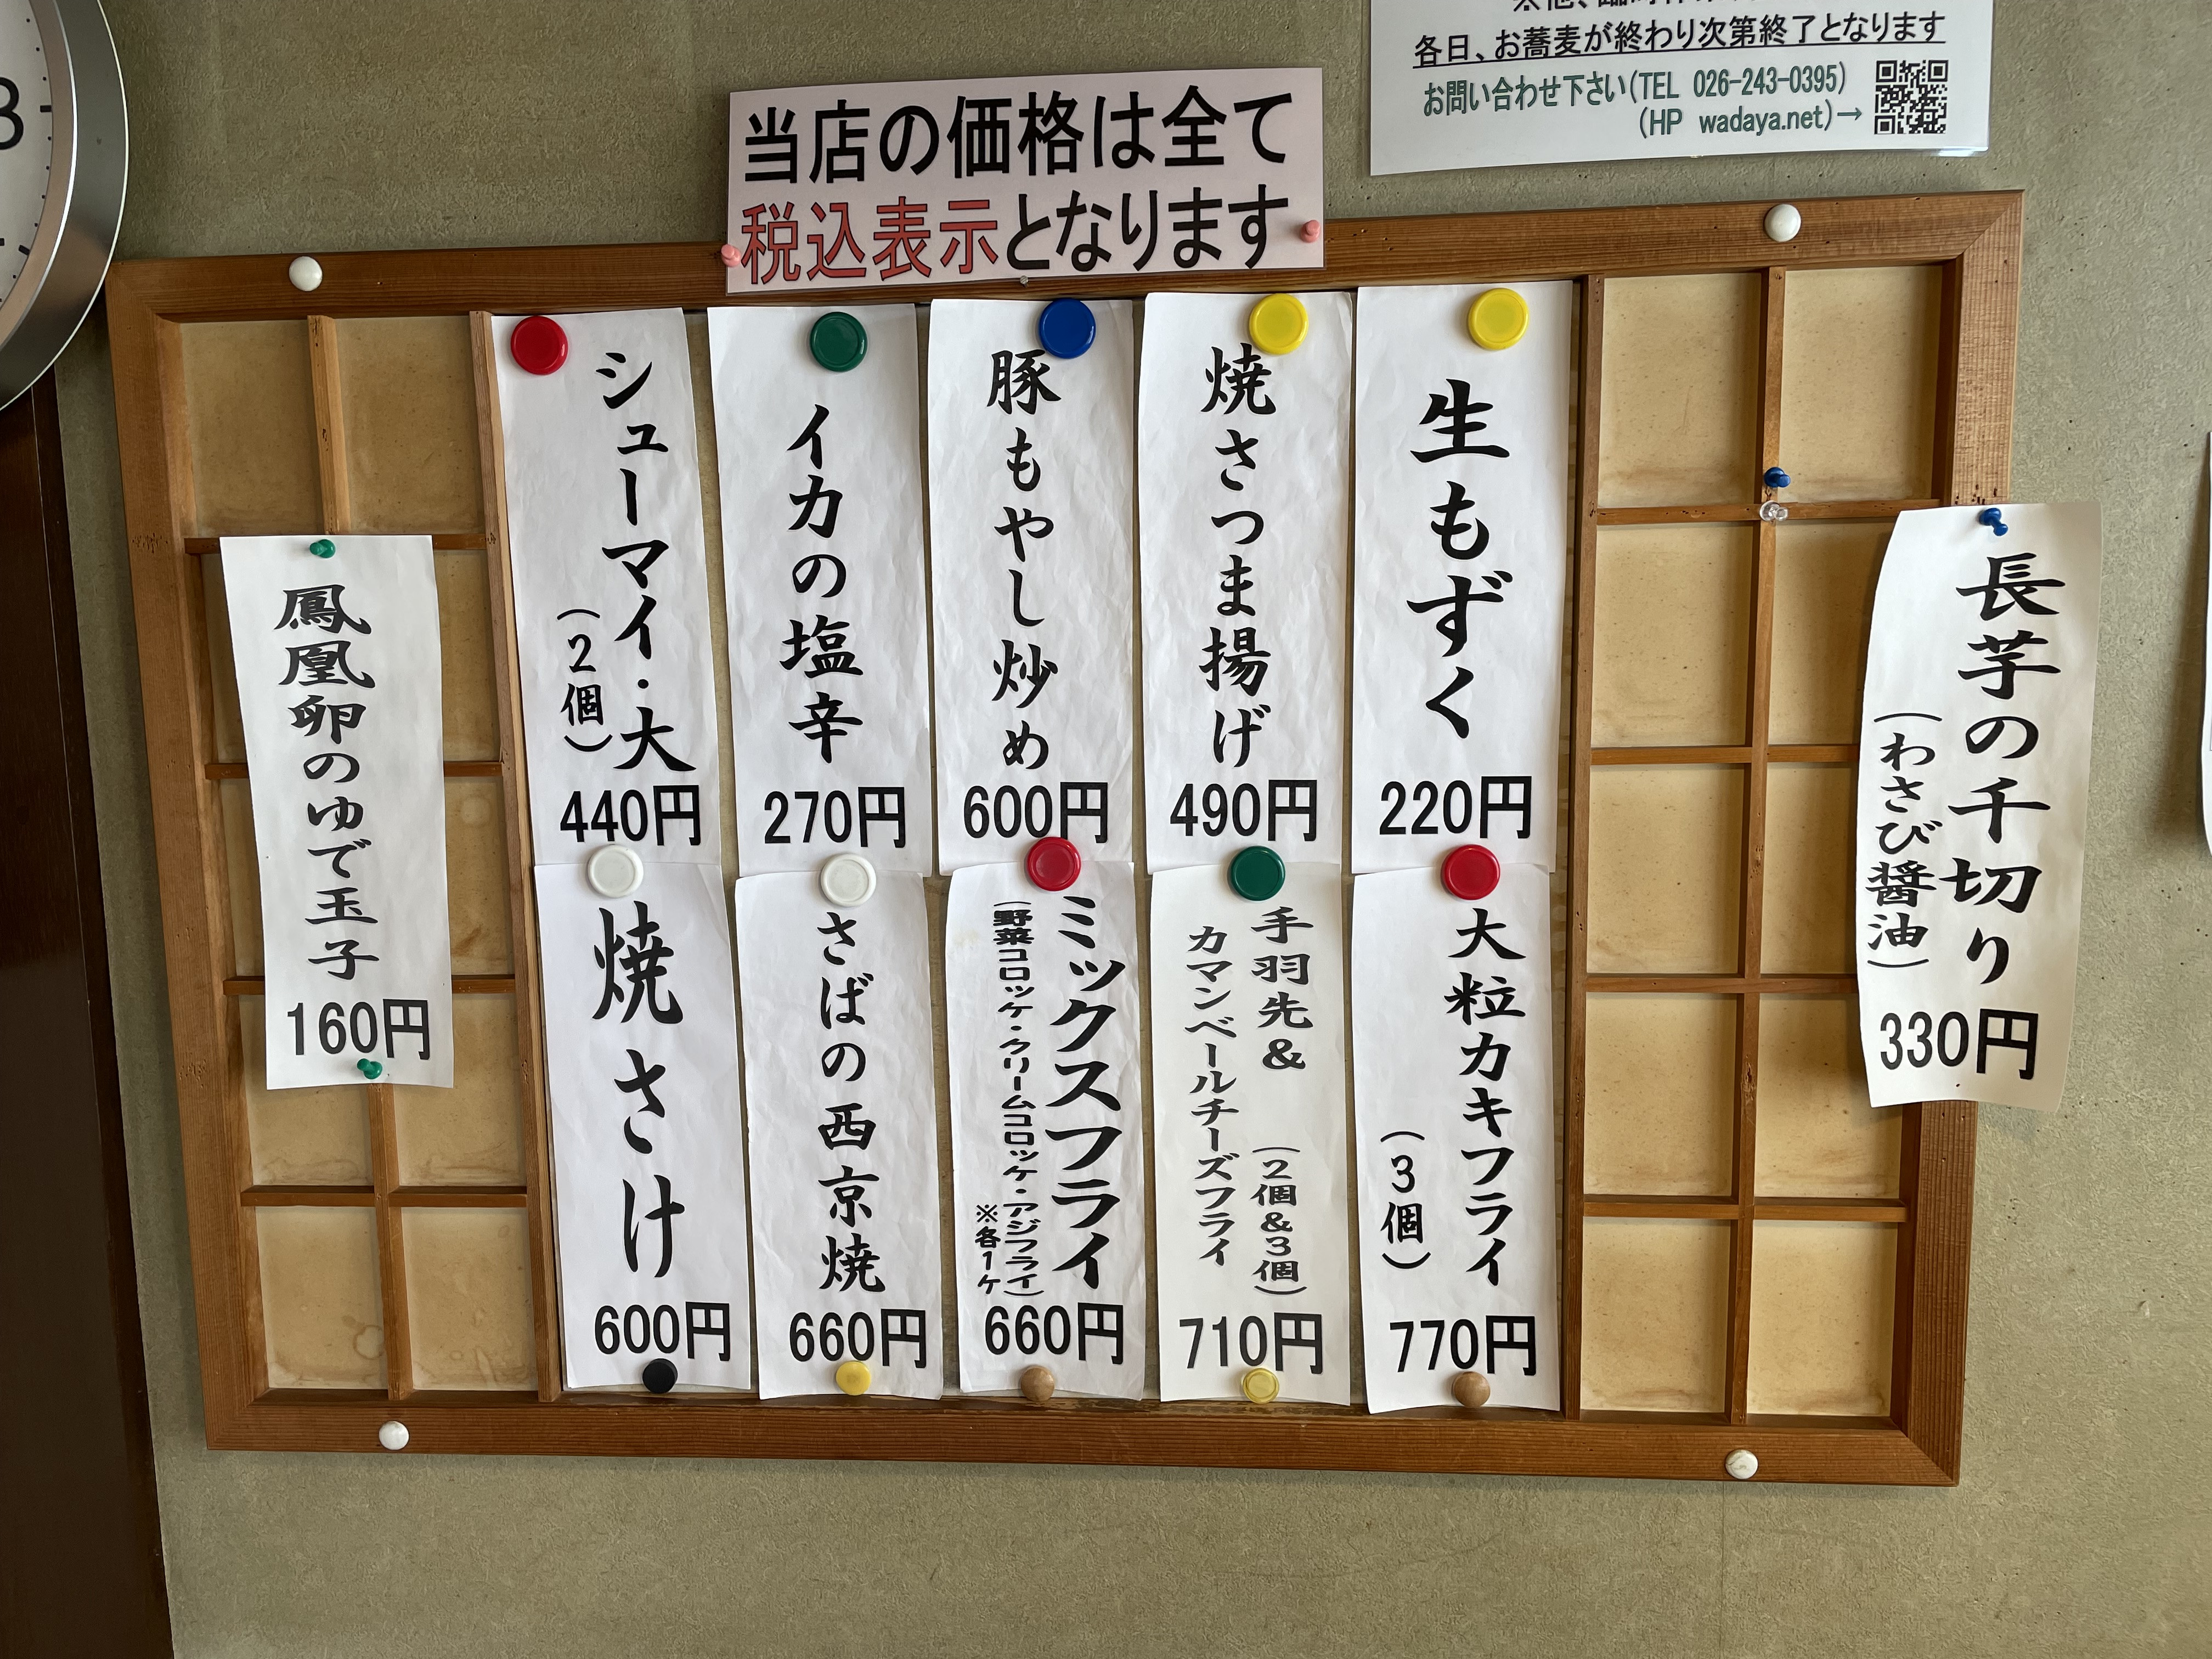 各日、お蕎麦が終わり次第終了となります
お問い合わせ下さい(TEL 026-243-0395)
(HP wadaya.net)→
当店の価格は全て
税込表示となります
長芋の千切り
(わさび醤油)
330円
生もずく
220円
焼さつま揚げ
490円
豚もやし炒め
600円
イカの塩辛
270円
シューマイ・大
(2個)
440円
大粒カキフライ
(3個)
770円
手羽先&
カマンベールチーズフライ
(2個&3個)
710円
ミックスフライ
(野菜コロッケ・クリームコロッケ・アジフライ)
※各1ケ
660円
さばの西京焼
660円
焼さけ
600円
鳳凰卵のゆで玉子
160円
3